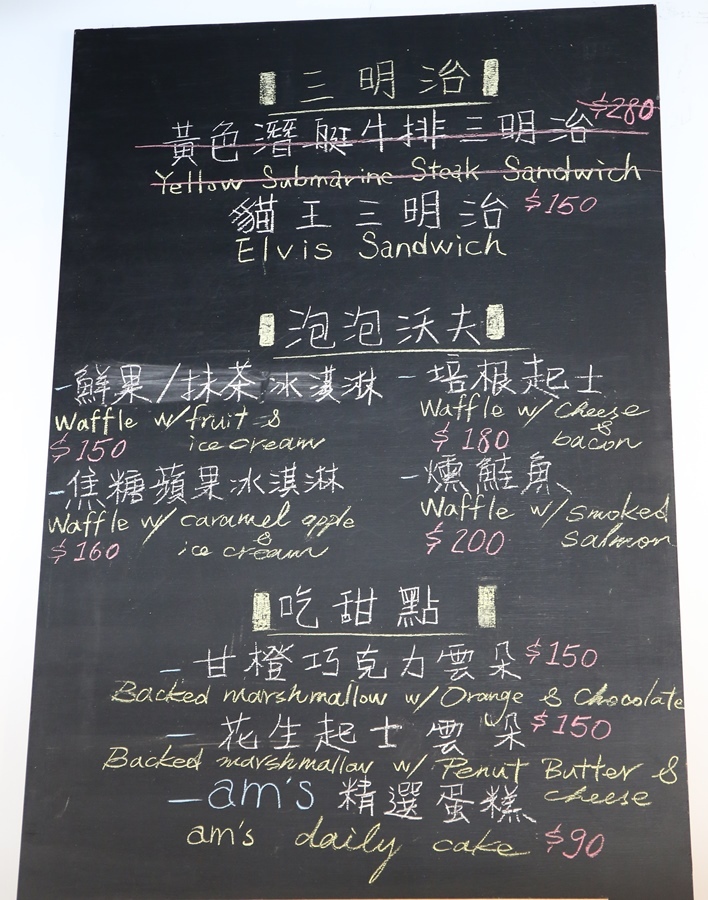 三明治
$280
黃色潛艇牛排三明治
Yellow Submarine Steak Sandwich
貓王三明治 $150
Elvis Sandwich
泡泡沃夫
-鮮果/抹茶冰淇淋
Waffle w/fruit &
$150 ice cream
-焦糖蘋果冰淇淋
Waffle w/ caramel apple
&
$160 ice cream
-培根起士
Waffle w/ Cheese
&
$180 bacon
-燻鮭魚
Waffle w/ Smoked
$200 Salmon
吃甜點
-甘橙巧克力雲朵 $150
Backed marshmallow w/ Orange & Chocolate
-花生起士雲朵 $150
Backed marshmallow w/ Penut Butter &
cheese
-am's 精選蛋糕
am's daily cake $90